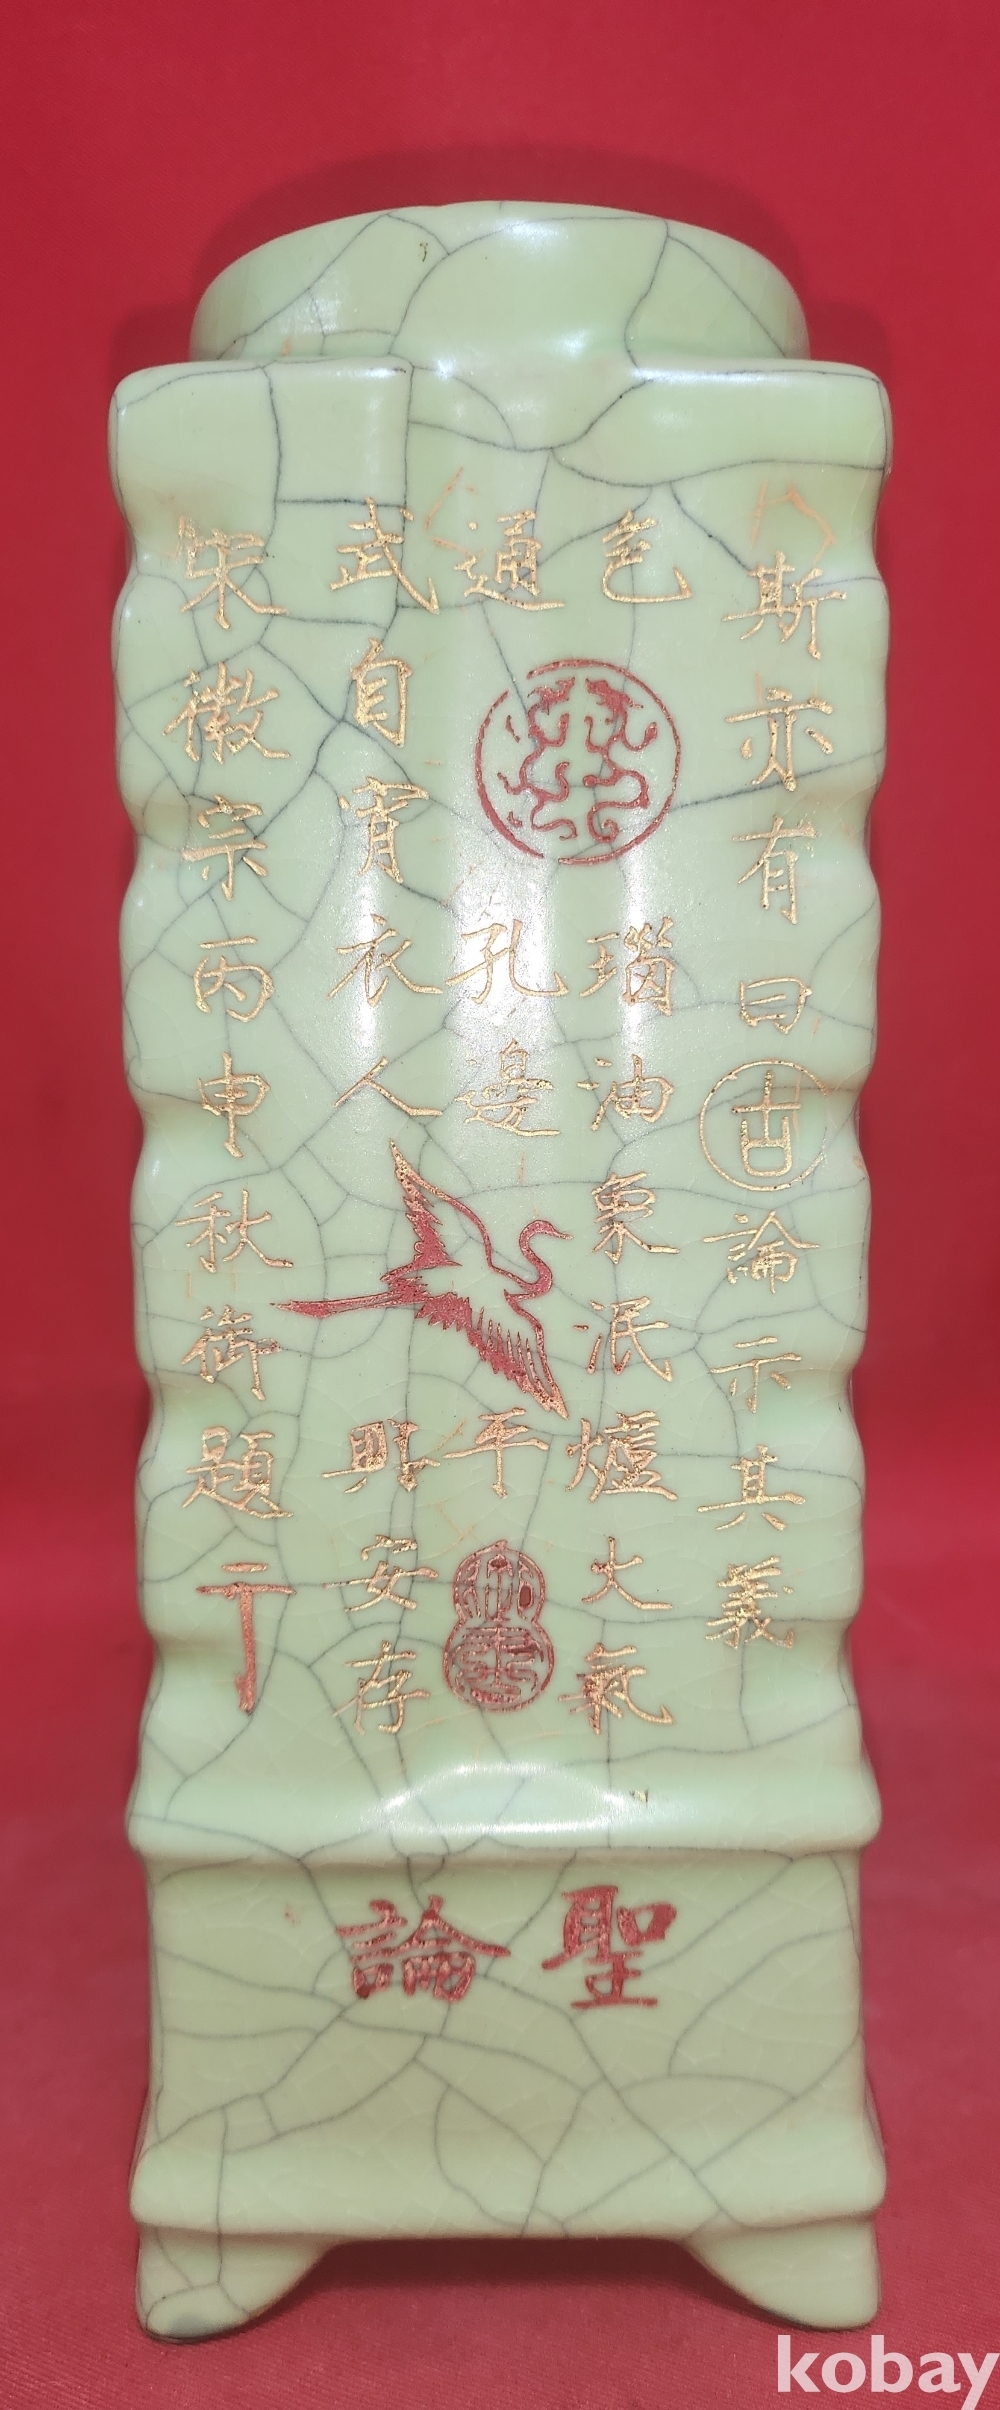 斯亦有曰古論示其義
色瑙油象泯爐大氣
通孔邊平
武自宵衣人明安存
宋徽宗丙申秋御題
聖論
kobay